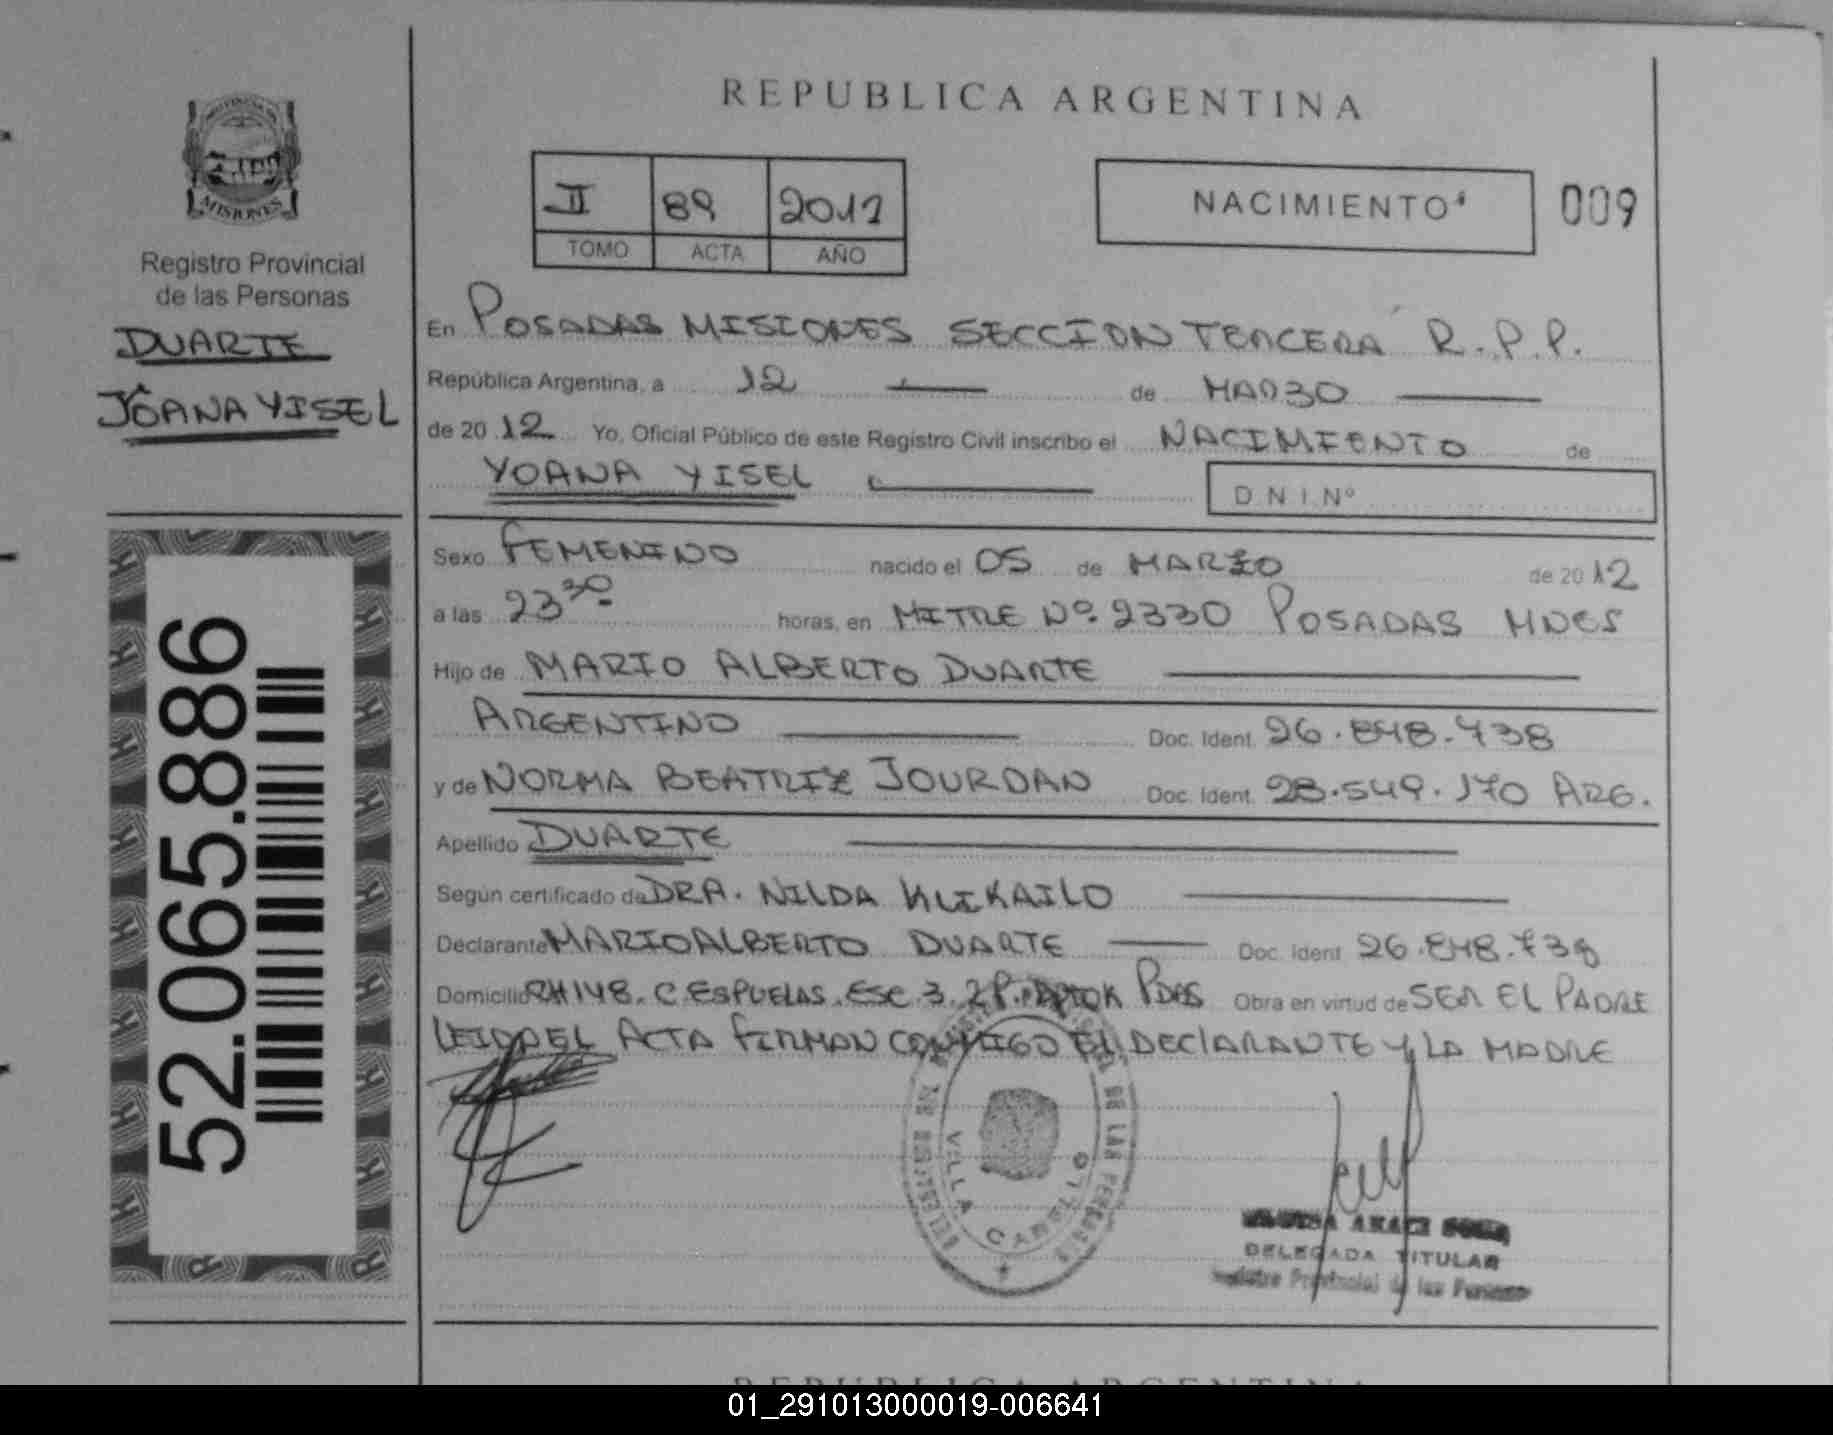 REPUBLICA ARGENTINA
II 89 2012
TOMO ACTA AÑO
NACIMIENTO
009
MISIONES
Registro Provincial
de las Personas
DUARTE
JOANA YISEL
52.065.886
En POSADAS MISIONES SECCION TERCERA R.P.P.
República Argentina, a 12 de MARZO
de 2012 Yo, Oficial Público de este Registro Civil inscribo el NACIMIENTO de
YOANA YISEL
D.N.I.Nº
Sexo FEMENINO nacido el 05 de MARZO de 2012
a las 23 30 horas, en MITRE Nº 2330 POSADAS MNES
Hijo de MARIO ALBERTO DUARTE
ARGENTINO Doc. Ident. 26.848.738
y de NORMA BEATRIZ JOURDAN Doc. Ident. 28.549.170 ARG.
Apellido DUARTE
Según certificado de DRA. NILDA KLIKAILO
Declarante MARIO ALBERTO DUARTE Doc. Ident. 26.848.738
Domicilio CH 148. C. ESPUELAS ESC. 3. 2P. PDAS Obra en virtud de SER EL PADRE
LEIDA EL ACTA FIRMAN CONMIGO EL DECLARANTE Y LA MADRE
DE LAS PERSONAS
VILLA CABELLO
DELEGADA TITULAR
Registro Provincial de las Personas
REPUBLICA ARGENTINA
01_291013000019-006641